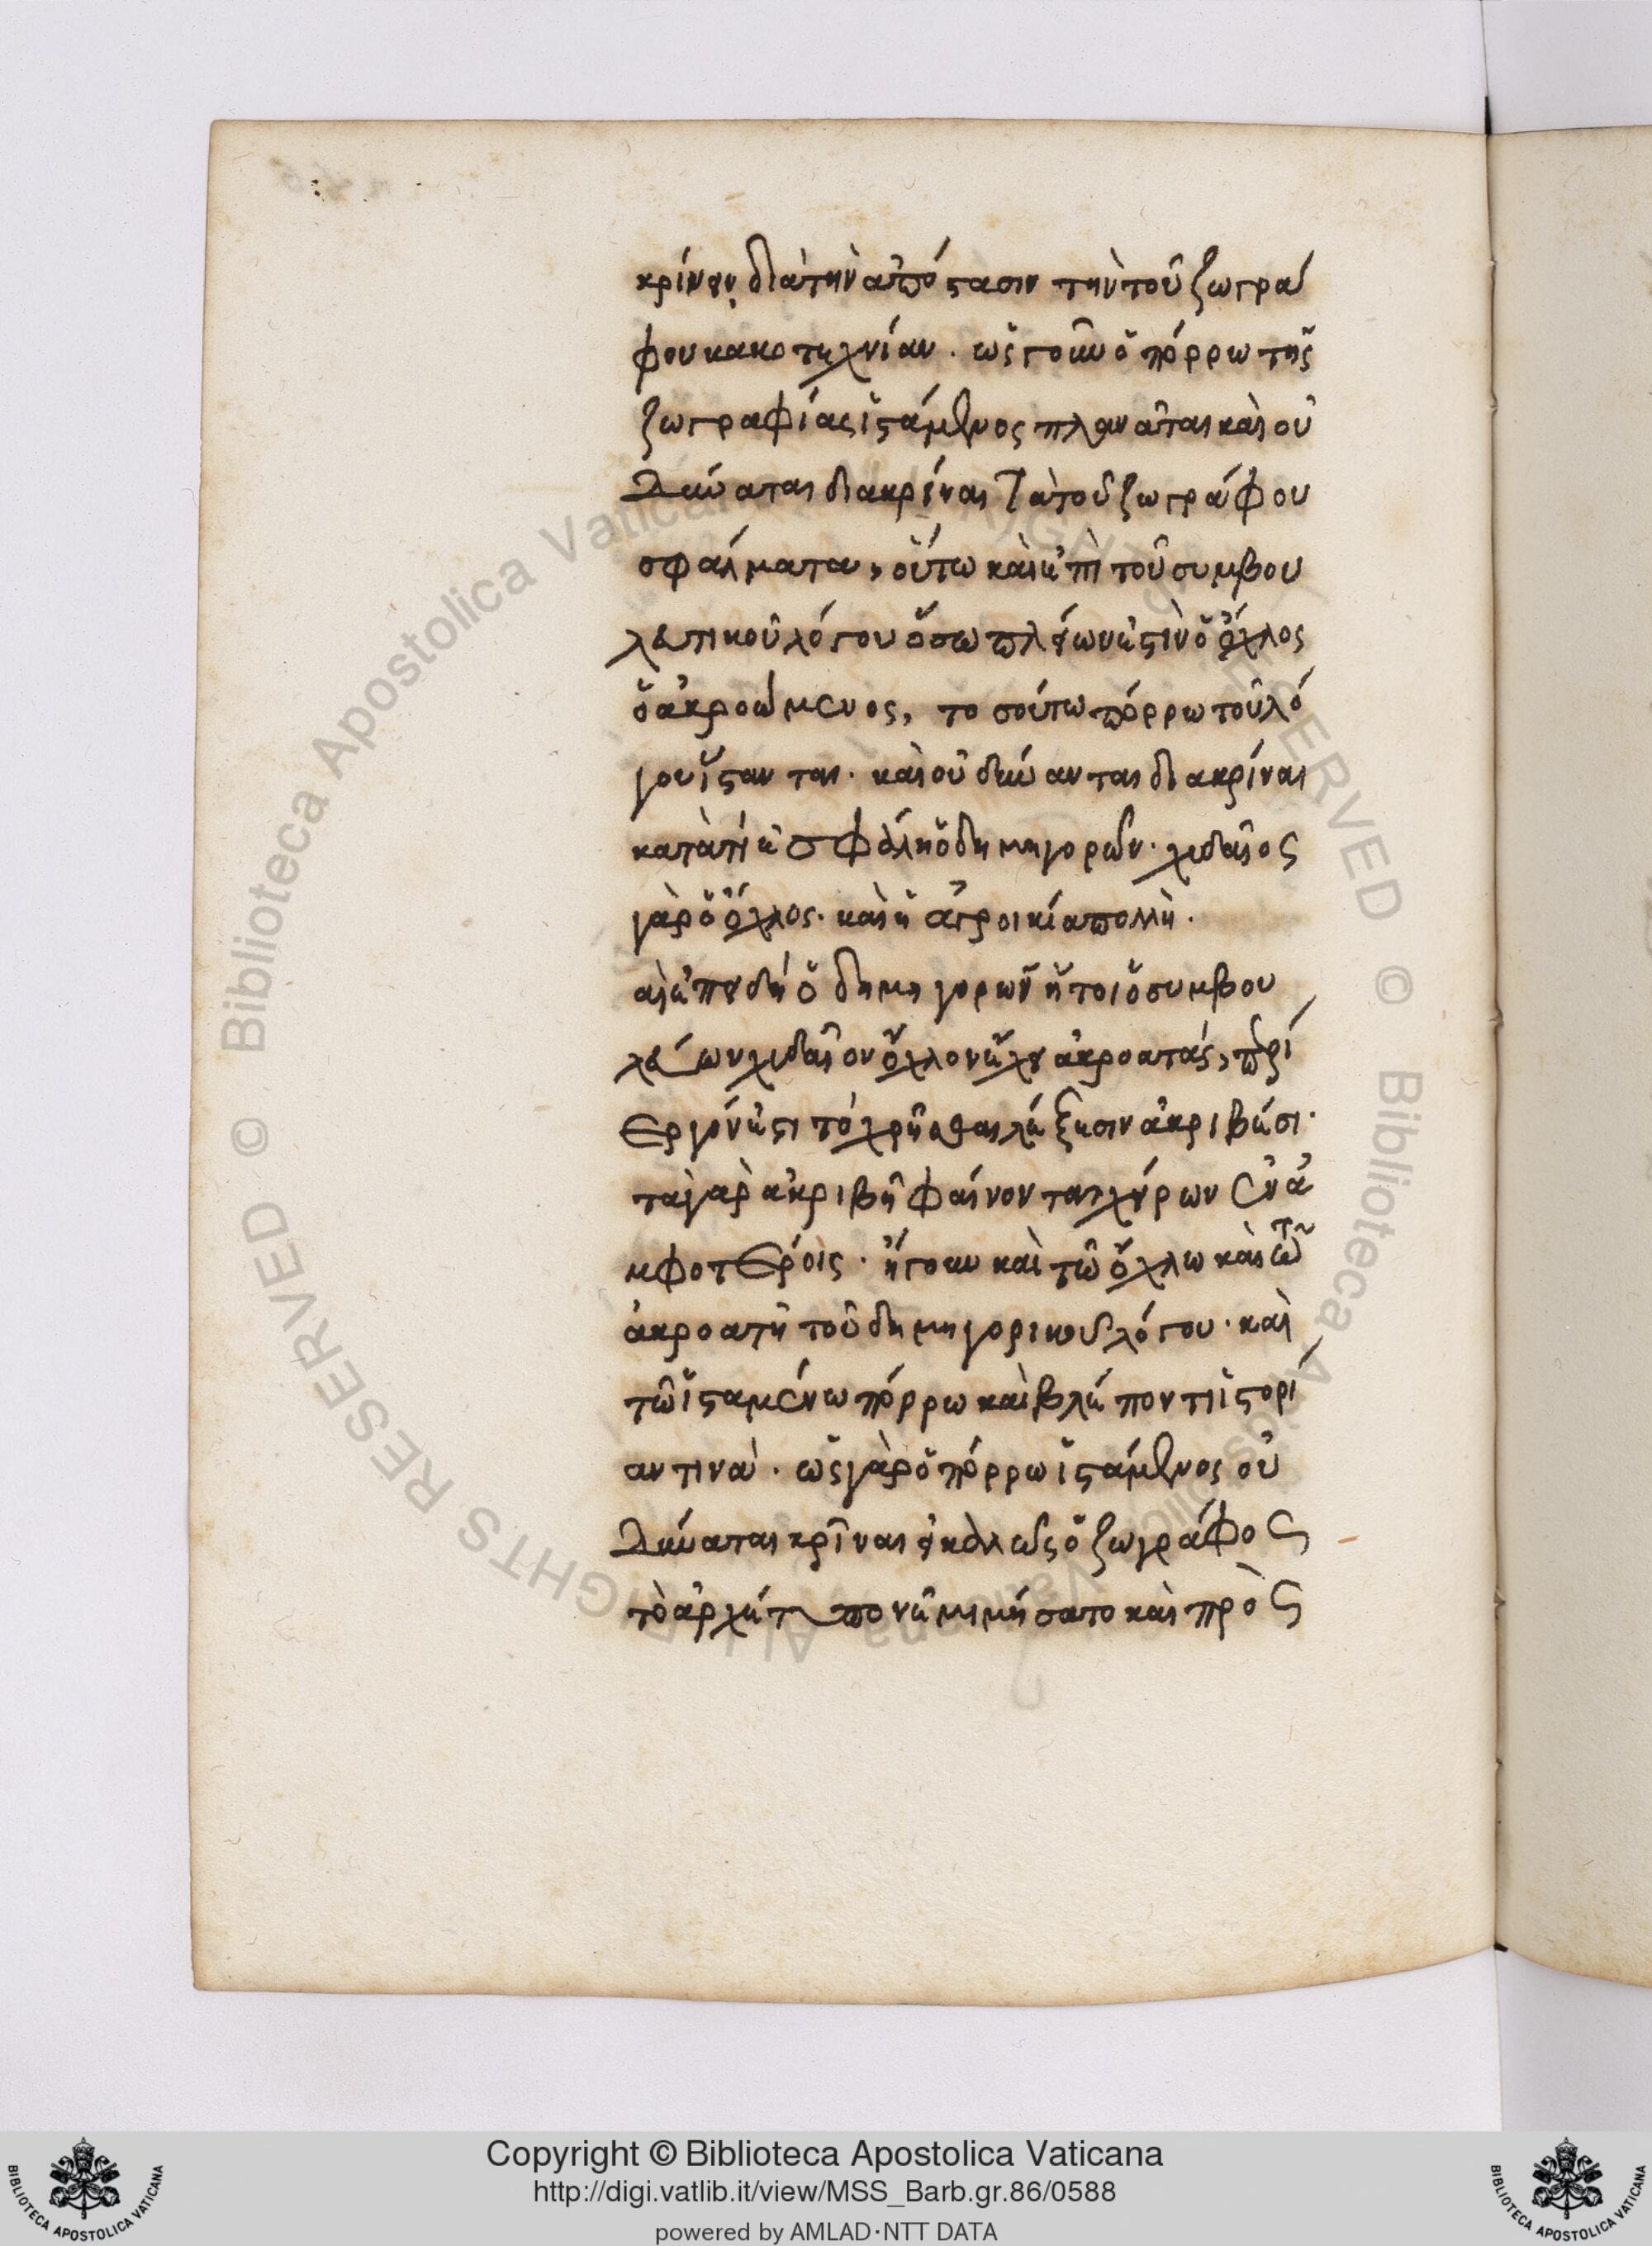 κρίνειν διὰ τὴν ἀπόστασιν τὴν τοῦ ζωγρά
φου κακοτεχνίαν. ὡς γοῦν ὁ πόρρω τῆς
ζωγραφίας ἱστάμενος πλανᾶται καὶ οὐ
δύναται διακρῖναι τὰ τοῦ ζωγράφου
σφάλματα, οὕτω καὶ ἐπὶ τοῦ συμβου
λευτικοῦ λόγου ὅσω πλείων ἐστὶν ὁ ὄχλος
ὁ ἀκροώμενος, τοσούτω πόρρω τοῦ λό
γου ἵστανται. καὶ οὐ δύνανται διακρίναι
κατὰ τί ἐσφάλη ὁ δημηγορῶν. χυδαῖος
γὰρ ὁ ὄχλος. καὶ ἡ ἀγροικία πολλὴ.
αὶ ἐπειδὴ ὁ δημηγορῶν ἤτοι ὁ συμβου
λεύων χυδαῖον ὄχλον ἔχει ἀκροατάς, περί
εργόν ἐστι τὸ χρῆσθαι λέξεσιν ἀκριβέσι.
τὰ γὰρ ἀκριβῆ φαίνονται χείρων ἐν ἀ
μφοτέροις. ἤγουν καὶ τῶ ὄχλω καὶ τῶ
ἀκροατῆ τοῦ δημηγορικοῦ λόγου. καὶ
τῶ ἱσταμένω πόρρω καὶ βλέποντι ἱστορί
αν τινὰ. ὡς γὰρ ὁ πόρρω ἱστάμενος οὐ
δύναται κρῖναι εἰ καλῶς ὁ ζωγράφος
τὸ ἀρχέτυπον ἐμιμήσατο καὶ πρὸς
Copyright © Biblioteca Apostolica Vaticana
http://digi.vatlib.it/view/MSS_Barb.gr.86/0588
powered by AMLAD·NTT DATA